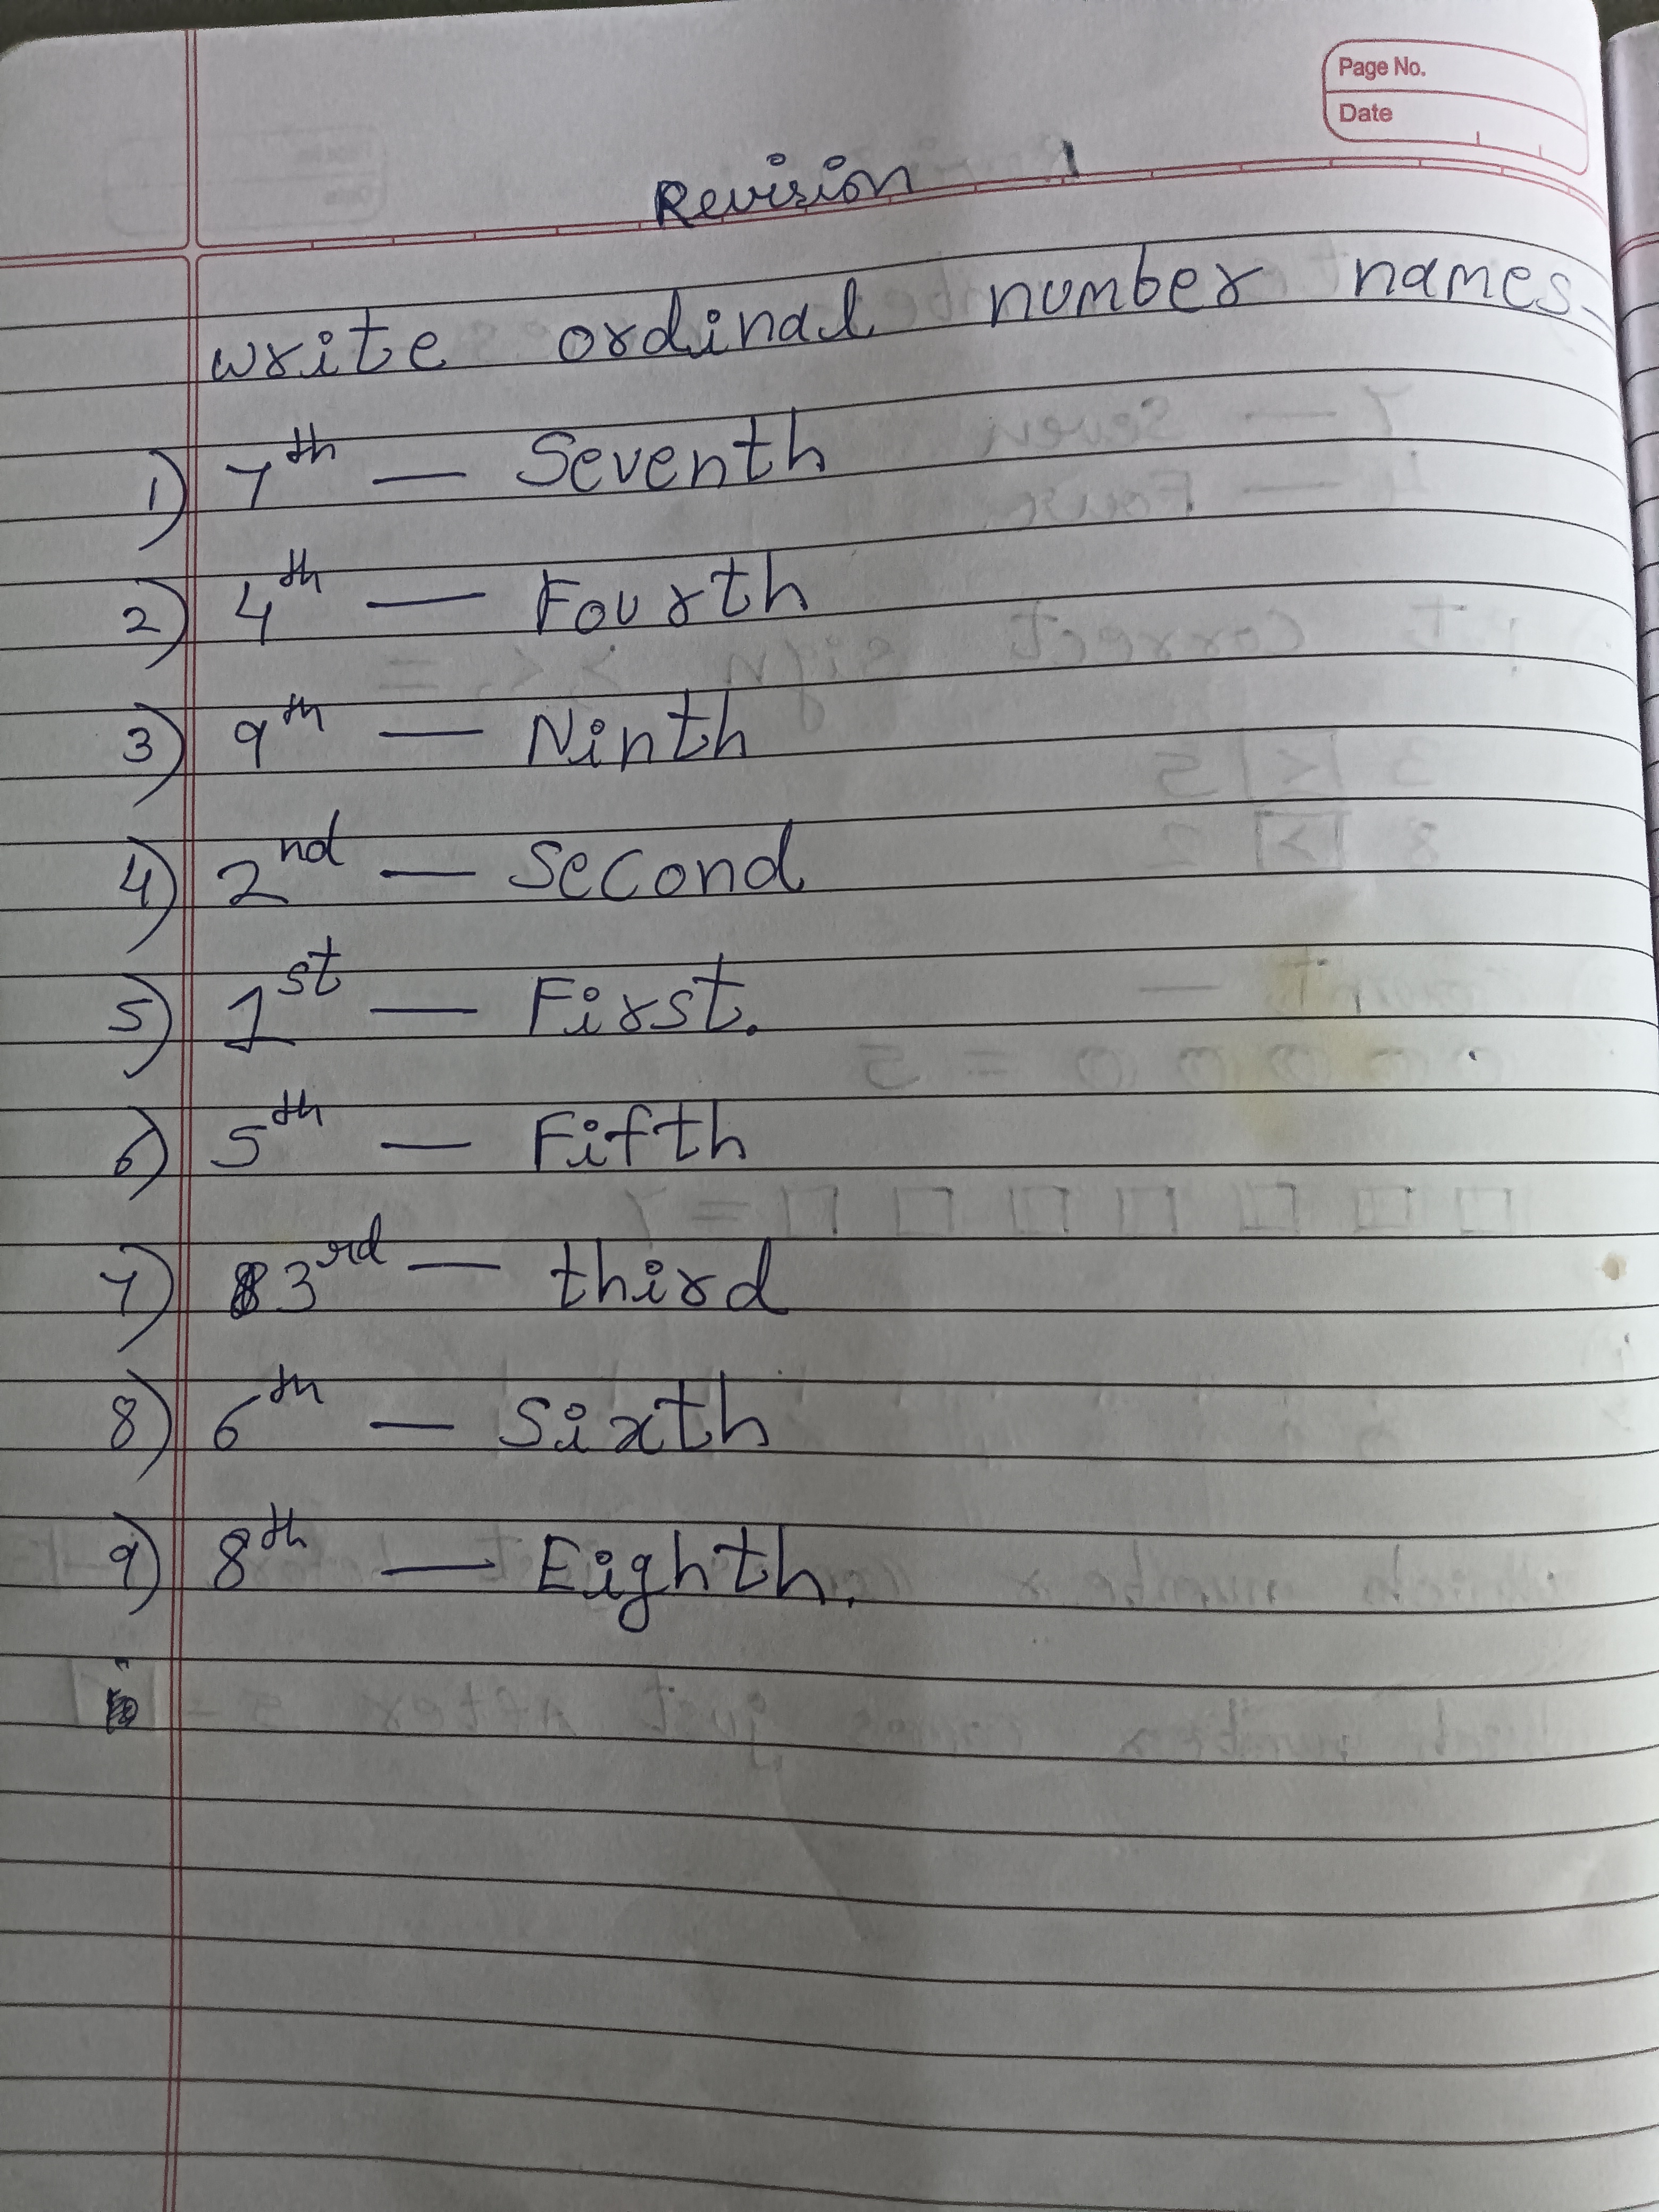 Page No.
Date
Revision 1
write ordinal number names.
1) 7th — Seventh
2) 4th — Fourth
3) 9th — Ninth
4) 2nd — Second
5) 1st — First.
6) 5th — Fifth
7) 3rd — third
8) 6th — Sixth
9) 8th — Eighth.